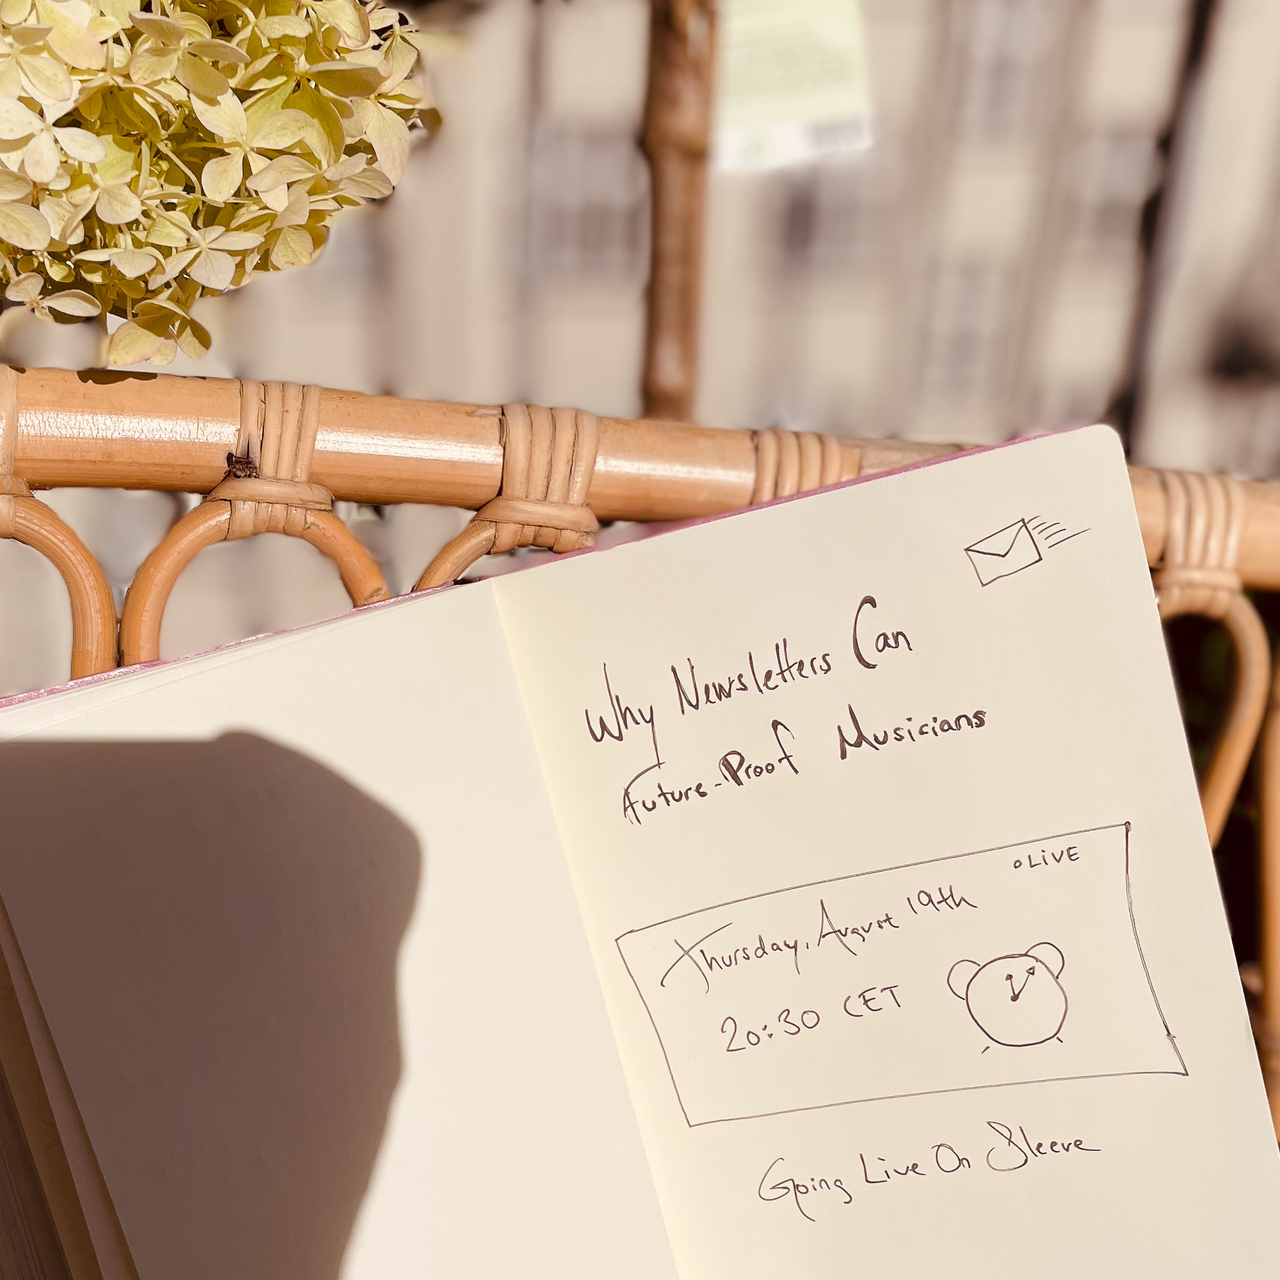 Why Newsletters Can
Future-Proof Musicians
LiVE
Thursday, August 19th
20:30 CET
Going Live On Sleeve